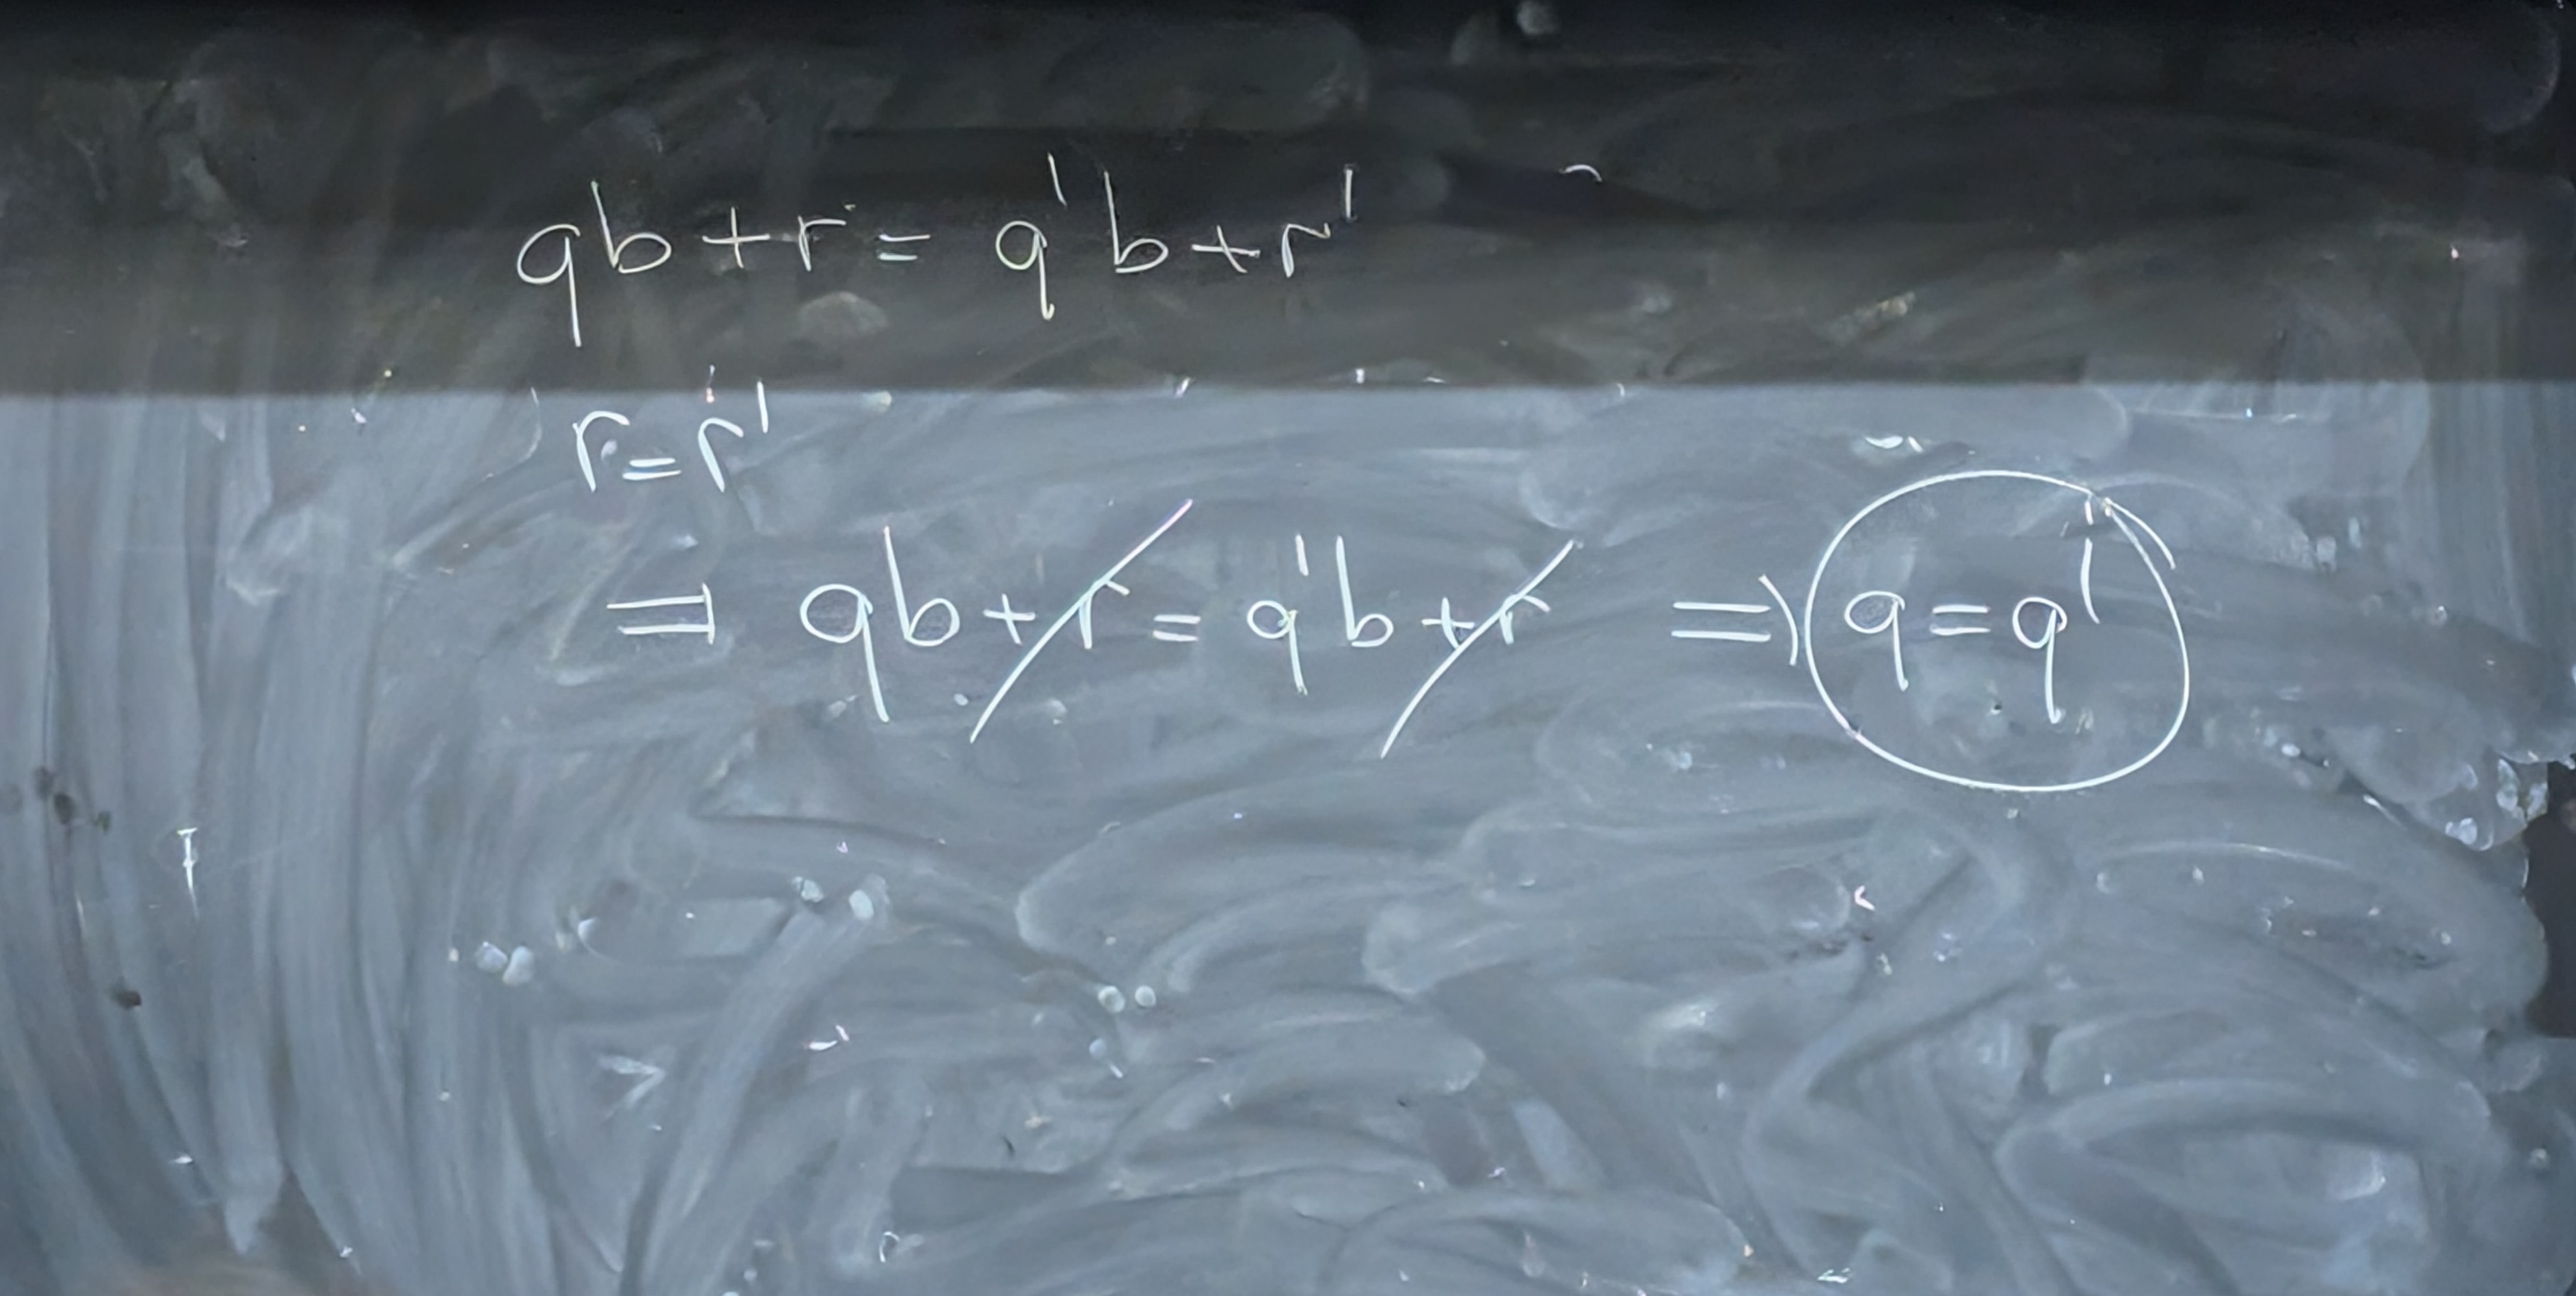 qb+r = q'b+r'
r=r'
⇒ qb+r = q'b+r ⇒ q=q'